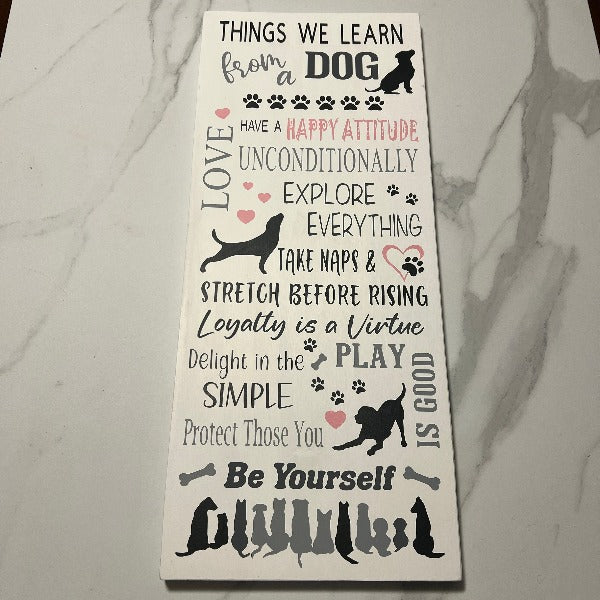 THINGS WE LEARN
from a DOG
HAVE A HAPPY ATTITUDE
LOVE UNCONDITIONALLY
EXPLORE
EVERYTHING
TAKE NAPS &
STRETCH BEFORE RISING
Loyalty is a Virtue
Delight in the
SIMPLE
PLAY IS GOOD
Protect Those You
Be Yourself